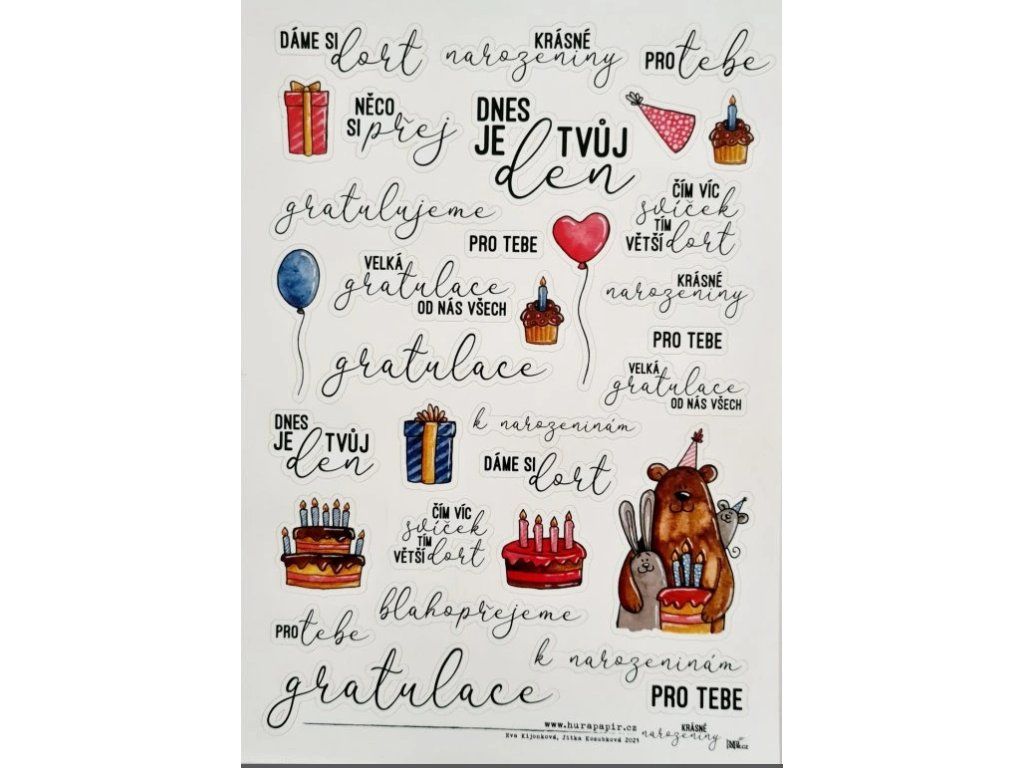 DÁME SI dort
KRÁSNÉ
narozeniny
PRO tebe
NĚCO
SI přej
DNES
JE TVŮJ
den
gratulujeme
ČÍM VÍC
svíček
TÍM
VĚTŠÍ dort
PRO TEBE
VELKÁ
gratulace
OD NÁS VŠECH
KRÁSNÉ
narozeniny
PRO TEBE
gratulace
VELKÁ
gratulace
OD NÁS VŠECH
DNES
JE TVŮJ
den
k narozeninám
DÁME SI dort
ČÍM VÍC
svíček
TÍM
VĚTŠÍ dort
blahopřejeme
PRO tebe
k narozeninám
gratulace
PRO TEBE
www.hurapapir.cz
Eva Kijonková, Jitka Kosubková 2021
KRÁSNÉ
narozeniny